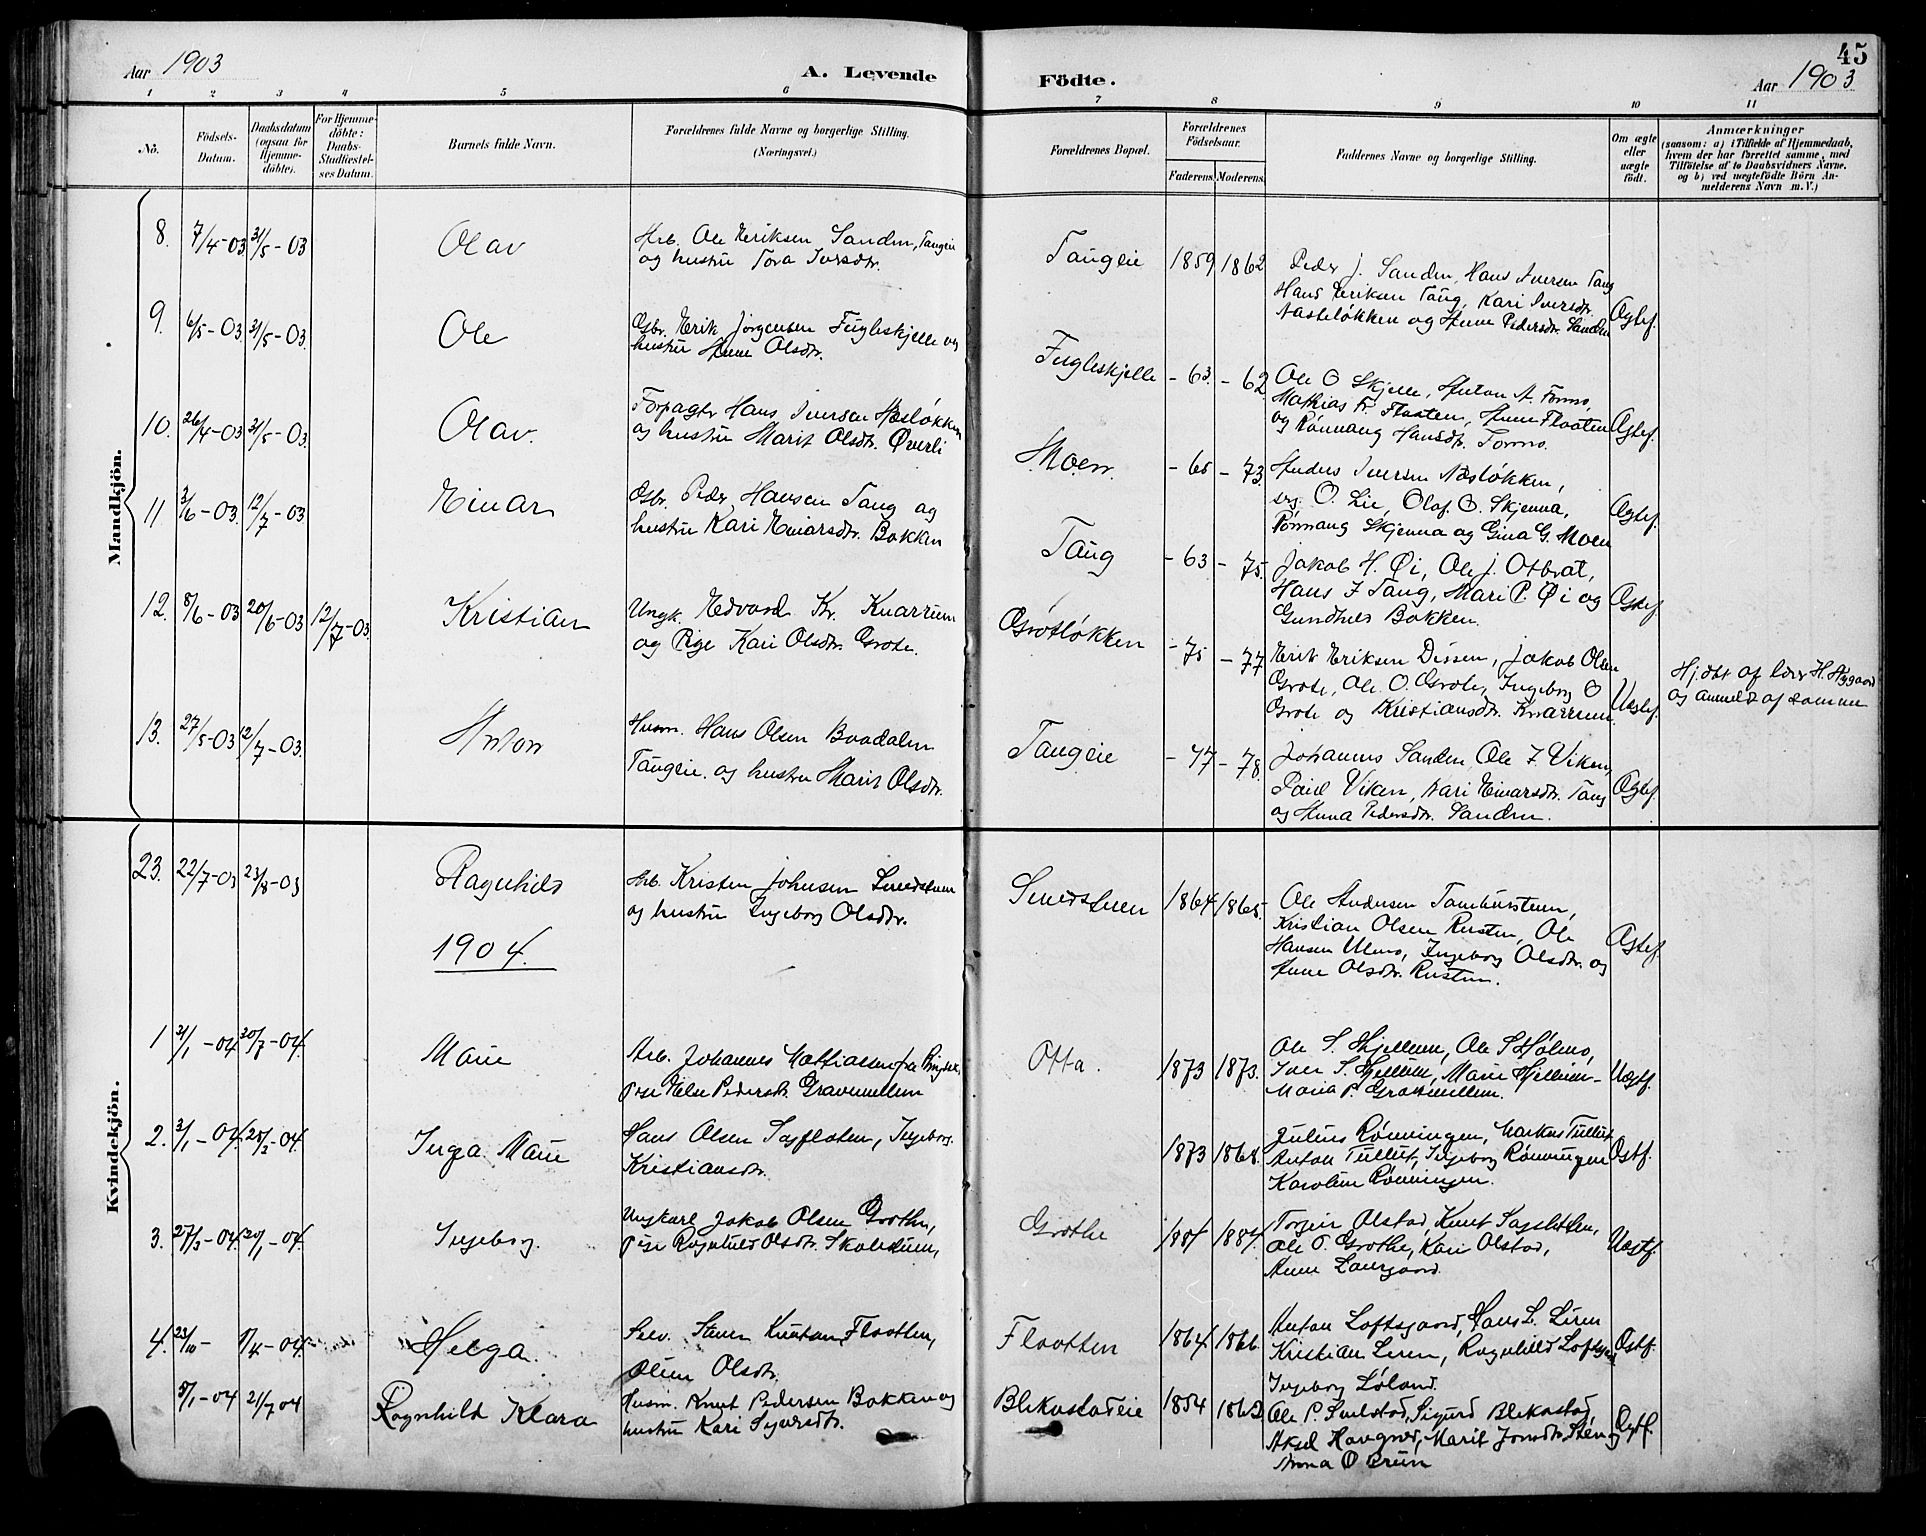 45
Aar 1903
A. Levende
Födte.
Aar 1903
1 2 3 4 5 6 7 8 9 10 11
No.
Födsels-
Datum.
Daabsdatum
(ogsaa for
Hjemme-
döbte).
For Hjemme-
döbte:
Daabs-
Stadfæstel-
ses Datum.
Barnets fulde Navn.
Forældrenes fulde Navne og borgerlige Stilling.
(Næringsvei.)
Forældrenes Bopæl.
Forældrenes
Födselsaar.
Faderens. Moderens.
Faddernes Navne og borgerlige Stilling.
Om ægte
eller
uægte
födt.
Anmærkninger
(saasom: a) i Tilfælde af Hjemmedaab,
hvem der har forrettet samme, med
Tilföielse af to Daabsvidners Navne.
og b) ved uægtefödte Börn An-
melderens Navn m. V.)
Mandkjön.
8. 7/4-03 31/5-03 Olav
Arb. Ole Eriksen Sanden, Tangeie
og hustru Tora Iversdtr.
Tangeie 1859 1862
Peder J. Sanden, Hans Iversen Tang
Hans Eriksen Tang, Kari Iversdtr.
og Anne Pedersdtr. Sanden
Ægtef.
9. 6/5-03 31/5-03. Ole
Gbr. Erik Jörgensen Fugleskjelle og
hustru Anne Olsdtr.
Fugleskjelle -63. -62
Ole O Skjelle, Anton A. Formo,
Mathias Fr. Flaaten, Anne Flaaten
og Rønnaug Hansdtr. Formo.
Ægtef.
10. 26/4-03 31/5-03. Olav.
Forpagtr Hans Iversen Næsløkken
og hustru Marit Olsdtr. Øverli
Moen. -65 -73.
Anders Iversen Næsløkken,
O. Lie, Olaf O. Skjenna,
Rönnaug Skjenna og Gina G. Moen
Ægtef.
11 3/6-03. 12/7-03 Einar
Gbr. Peder Hansen Tang og
hustru Kari Einarsdtr. Bakken
Tang -63 -75.
Jakob H. Øi, Ole J. Otbrat,
Hans J Tang, Mari P. Øi og
Bakken.
Ægtef.
12. 8/6-03 20/6-03 12/7-03. Kristian
Ungk. Edvard Kr. Knarrum
og Pige Kari Olsdtr. Grote.
Grotløkken -75 -77
Erik Eriksen Dissen, Jakob Olsen
Grote, Ole O. Grote, Ingeborg O
Grote og Kristiansdtr. Knarrum.
Uægtef.
Hj.dbt af lærer H. Aagaard
og anmeldt af samme
13. 27/5-03 12/7-03. Anton
Husm. Hans Olsen Baadalen
Tangeie. og hustru Marit Olsdtr.
Tangeie -47 -78.
Johannes Sanden, Ole J Viken,
Paul Viken, Kari Einarsdtr. Tang
og Anna Pedersdtr. Sanden.
Ægtef.
Kvindekjön.
23. 22/7-03 23/8-03 Ragnhild
Arb. Kristen Johnsen
og hustru Ingeborg Olsdtr.
1864 1865.
Ole Andersen
Kristian Olsen Rusten, Ole
Hansen Ulmo, Ingeborg Olsdtr. og
Anne Olsdtr. Rusten.
Ægtef.
1904.
1 31/1-04 30/7-04. Marie
Arb. Johannes Mattiassen fra Ringebu,
pige Else Pedersdtr. Gravmellem
Otta. 1873 1873.
Ole S. Skjellum, Ole S Hølmo,
Iver S. Hjellum, Marie Hjellum-
Maria P. Gravmellem.
Uægtf.
2. 3/1-04. -04. Inga Marie
Hans Olsen Sagflaten, Ingeborg
Kristiansdtr.
1873 1868.
Julius Rønningen, Markus Tullut,
Anton Tullut, Ingeborg Rønningen
Karoline Rønningen.
Ægtf.
3. 27/3-04. -04. Ingeborg.
Ungkarl Jakob Olsen Grothe,
pige Ragnhild Olsdtr.
Grothe 1884
Torgeir Olstad, Knut Sagsletten,
Ole O. Grothe, Kari Olstad,
Anne
Uægtf.
4. 23/10- 17/4-04. Helga.
Selv. Steen Knutsen Flaatten,
Oline Olsdtr.
Flaatten 1864 1866.
Anton Loftsgaard, Hans L. Liren
Kristian Leren, Ragnhild Loftsgd
Ingeborg Løland.
Ægtf.
5/1-04 21/7 04 Ragnhild Klara
Husm. Knut Pedersen Bakken og
hustru Kari Syversdtr.
Blekastadeie 1854 1862
Ole P. Smedstad, Sigurd Blekastad,
Aksel Haugnes, Marit Jonsdtr. Steng
Anna O Bruun
Ægtf.